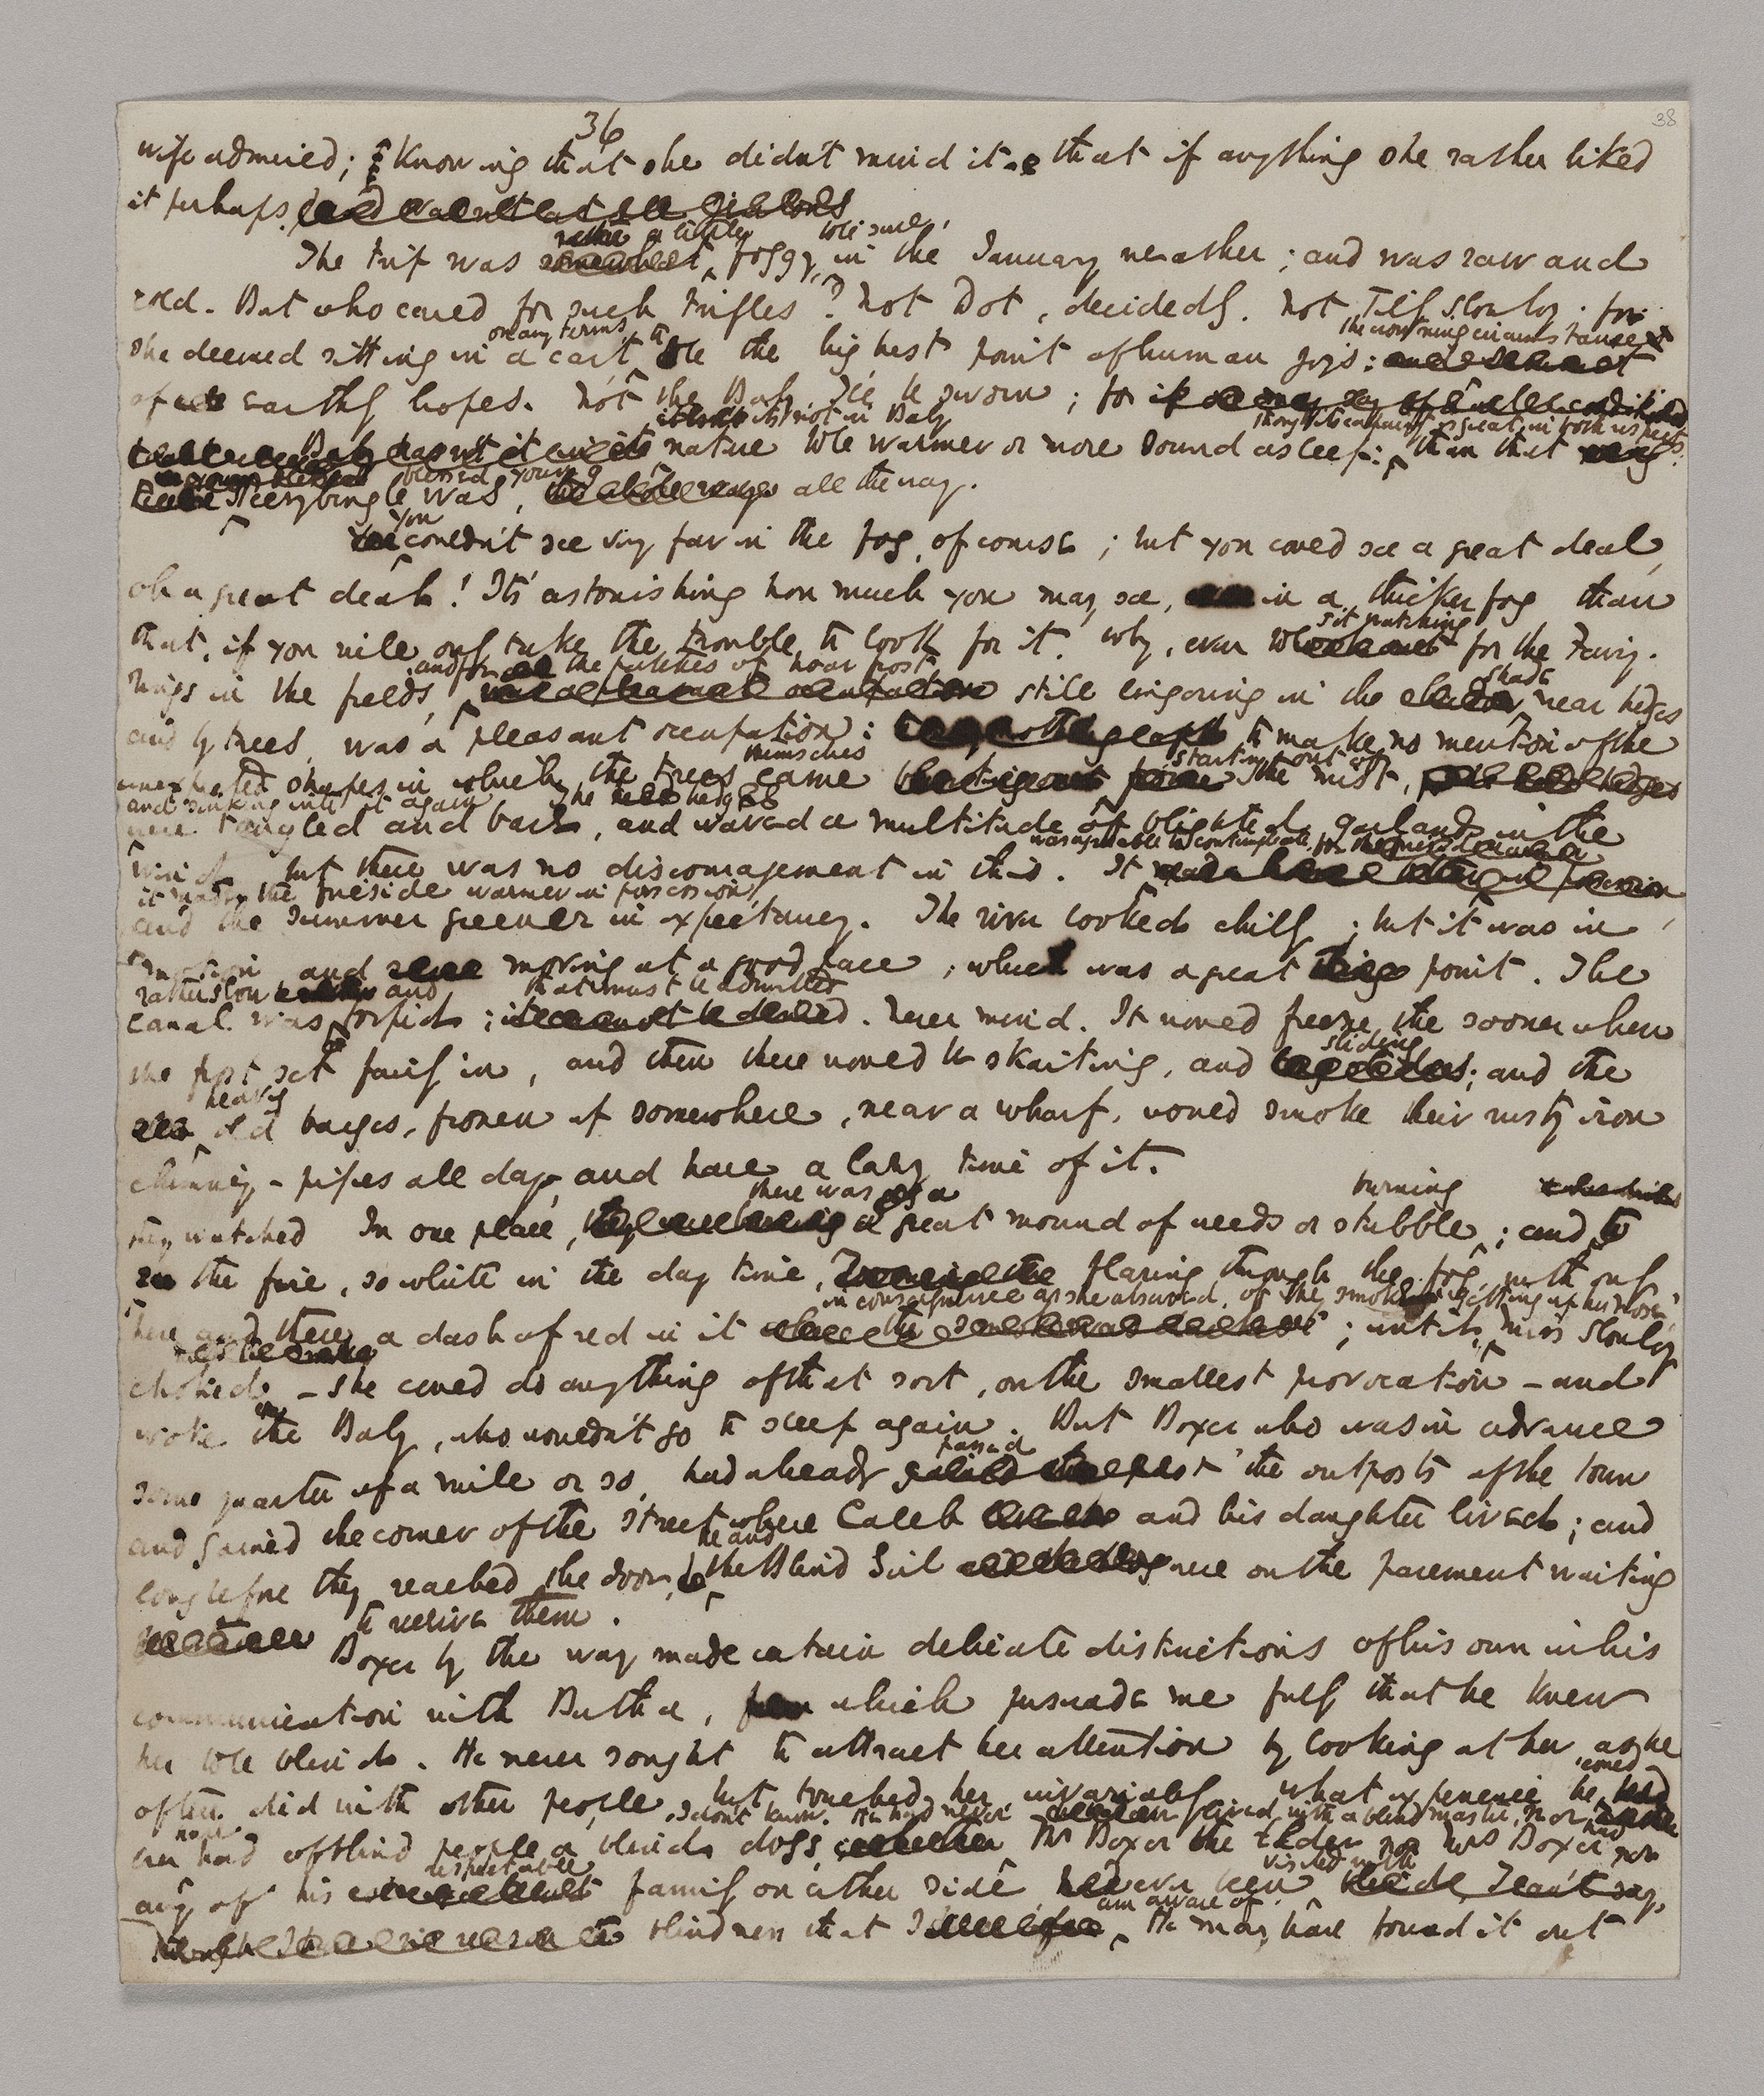 36
38
wife admired; Knowing that she didn't mind it. that if anything she rather liked
it perhaps.
rather a little be sure,
The trip was foggy, in the January weather; and was raw and
cold. But who cared for such trifles? Not Dot, decidedly. Not Tilly Slowboy. for
on any terms, to the crowning circumstance
she deemed sitting in a cart be the highest point of human joys:
of earthly hopes. Not the Baby I'll be sworn; for
it's not in Baby though its capacity is great in both respects
nature to be warmer or more sound asleep: than that
blessed young
Peerybingle was, all the way.
you
couldn't see very far in the fog, of course; but you could see a great deal,
oh a great deal! It's astonishing how much you may see, in a thicker fog than
sit watching
that, if you will only take the trouble to look for it. Why, even to for the Fairy-
and for the patches of hoar frost
rings in the fields, still lingering in the near hedges
shade
and by trees, was a pleasant occupation: to make no mention of the
themselves starting out of
unexpected shapes in which the trees came the mist,
and sinking into it again The hedges
were tangled and bare, and waved a multitude of blighted garlands in the
was agreeable to contemplate, for
wind but there was no discouragement in this. It possession
it made the fireside warmer in possession,
and the summer greener in expectancy. The river looked chilly; but it was in
motion and moving at a good pace; which was a great point. The
rather slow and that must be admitted
canal was torpid; Never mind. It would freeze the sooner when
sliding
the frost set fairly in, and then there would be skaiting, and ; and the
heavy
old barges, frozen up somewhere, near a wharf, would smoke their rusty iron
chimney-pipes all day, and have a lazy time of it.
there was a burning
they watched In one place, great mound of weeds or stubble; and
the fire, so white in the day time, flaring through the fog, with only
in consequence as she observed, of the smoke getting up her nose,
here and there a dash of red in it ; until, Miss Slowboy
choked - she could do anything of that sort, on the smallest provocation - and
woke the Baby, who wouldn't go to sleep again. But Boxer who was in advance
passed
some quarter of a mile or so, had already the outposts of the town
and gained the corner of the street where Caleb and his daughter lived; and
he and
long before they reached the door, the Blind Girl were on the pavement waiting
to receive them.
Boxer by the way made certain delicate distinctions of his own in his
communication with Bertha, which persuade me fully that he knew
her to be blind. He never sought to attract her attention by looking at her, as he
could
often did with other people, but touched her, invariably. What experience he
I don't know. He had never lived with a blind master, nor had
ever had of blind people or blind dogs, Mr Boxer the Elder, nor Mrs Boxer nor
respectable visited with
any of his family on either side ever been
am aware of.
blindness that I He may have found it out